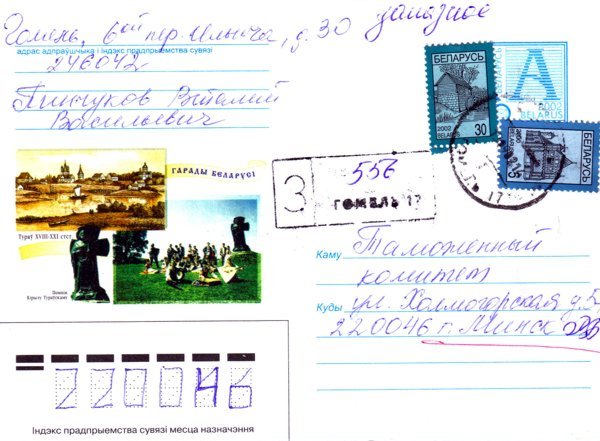 заказное
Гомель, 6ой пер. Ильича, д. 30
адрас адпраўшчыка і індэкс прадпрыемства сувязі
246042
Пинчуков Виталий
Васильевич
БЕЛАРУСЬ
2002
BELARUS
30
А
2002
BELARUS
БЕЛАРУСЬ
5
ГАРАДЫ БЕЛАРУСІ
Тураў XVIII-XXI стст.
Помнік
Кірылу Тураўскаму
З
556
ГОМЕЛЬ 17
Каму
Таможенный
комитет
Куды
ул. Холмогорская д.
220046 г. Минск
220046
Індэкс прадпрыемства сувязі месца назначэння